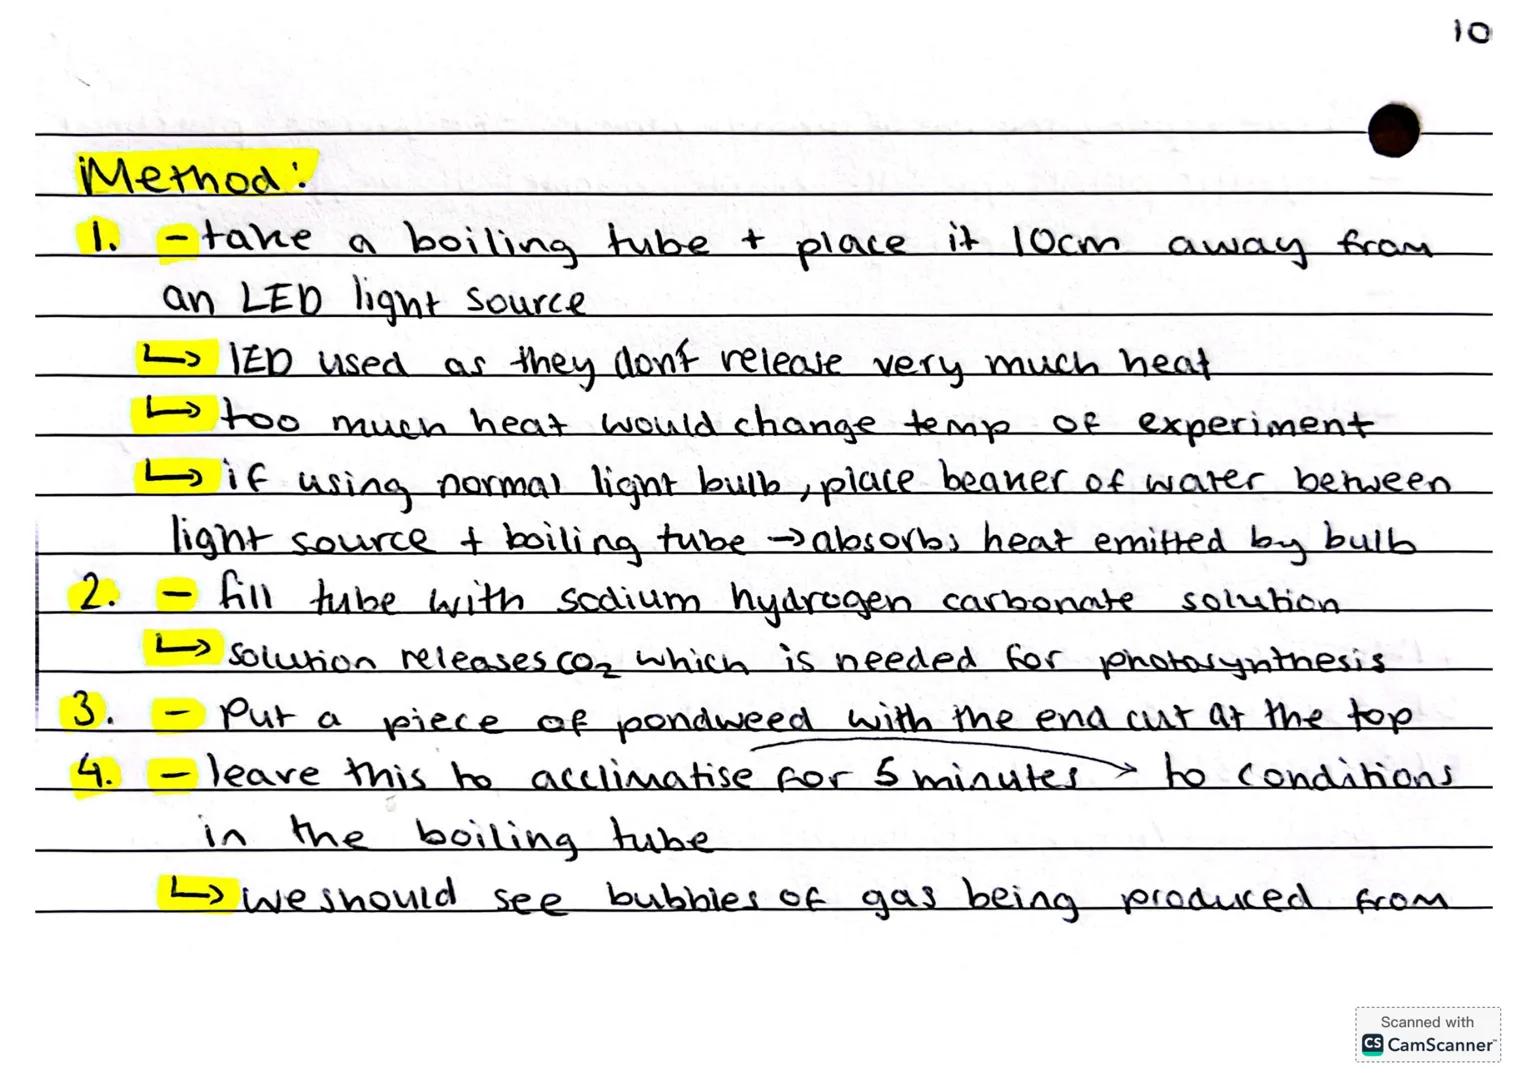 10
Method:
1. - take a boiling tube + place it 10cm away from
an LED light source
↳ LED used as they don't release very much heat
↳ too much heat would change temp of experiment
↳ if using normal light bulb, place beaker of water between
light source + boiling tube → absorbs heat emitted by bulb
2. - fill tube with sodium hydrogen carbonate solution
↳ solution releases CO₂ which is needed for photosynthesis
3. - Put a piece of pondweed with the end cut at the top
4. - leave this to acclimatise for 5 minutes → to conditions
in the boiling tube
↳ we should see bubbles of gas being produced from
Scanned with
CS CamScanner